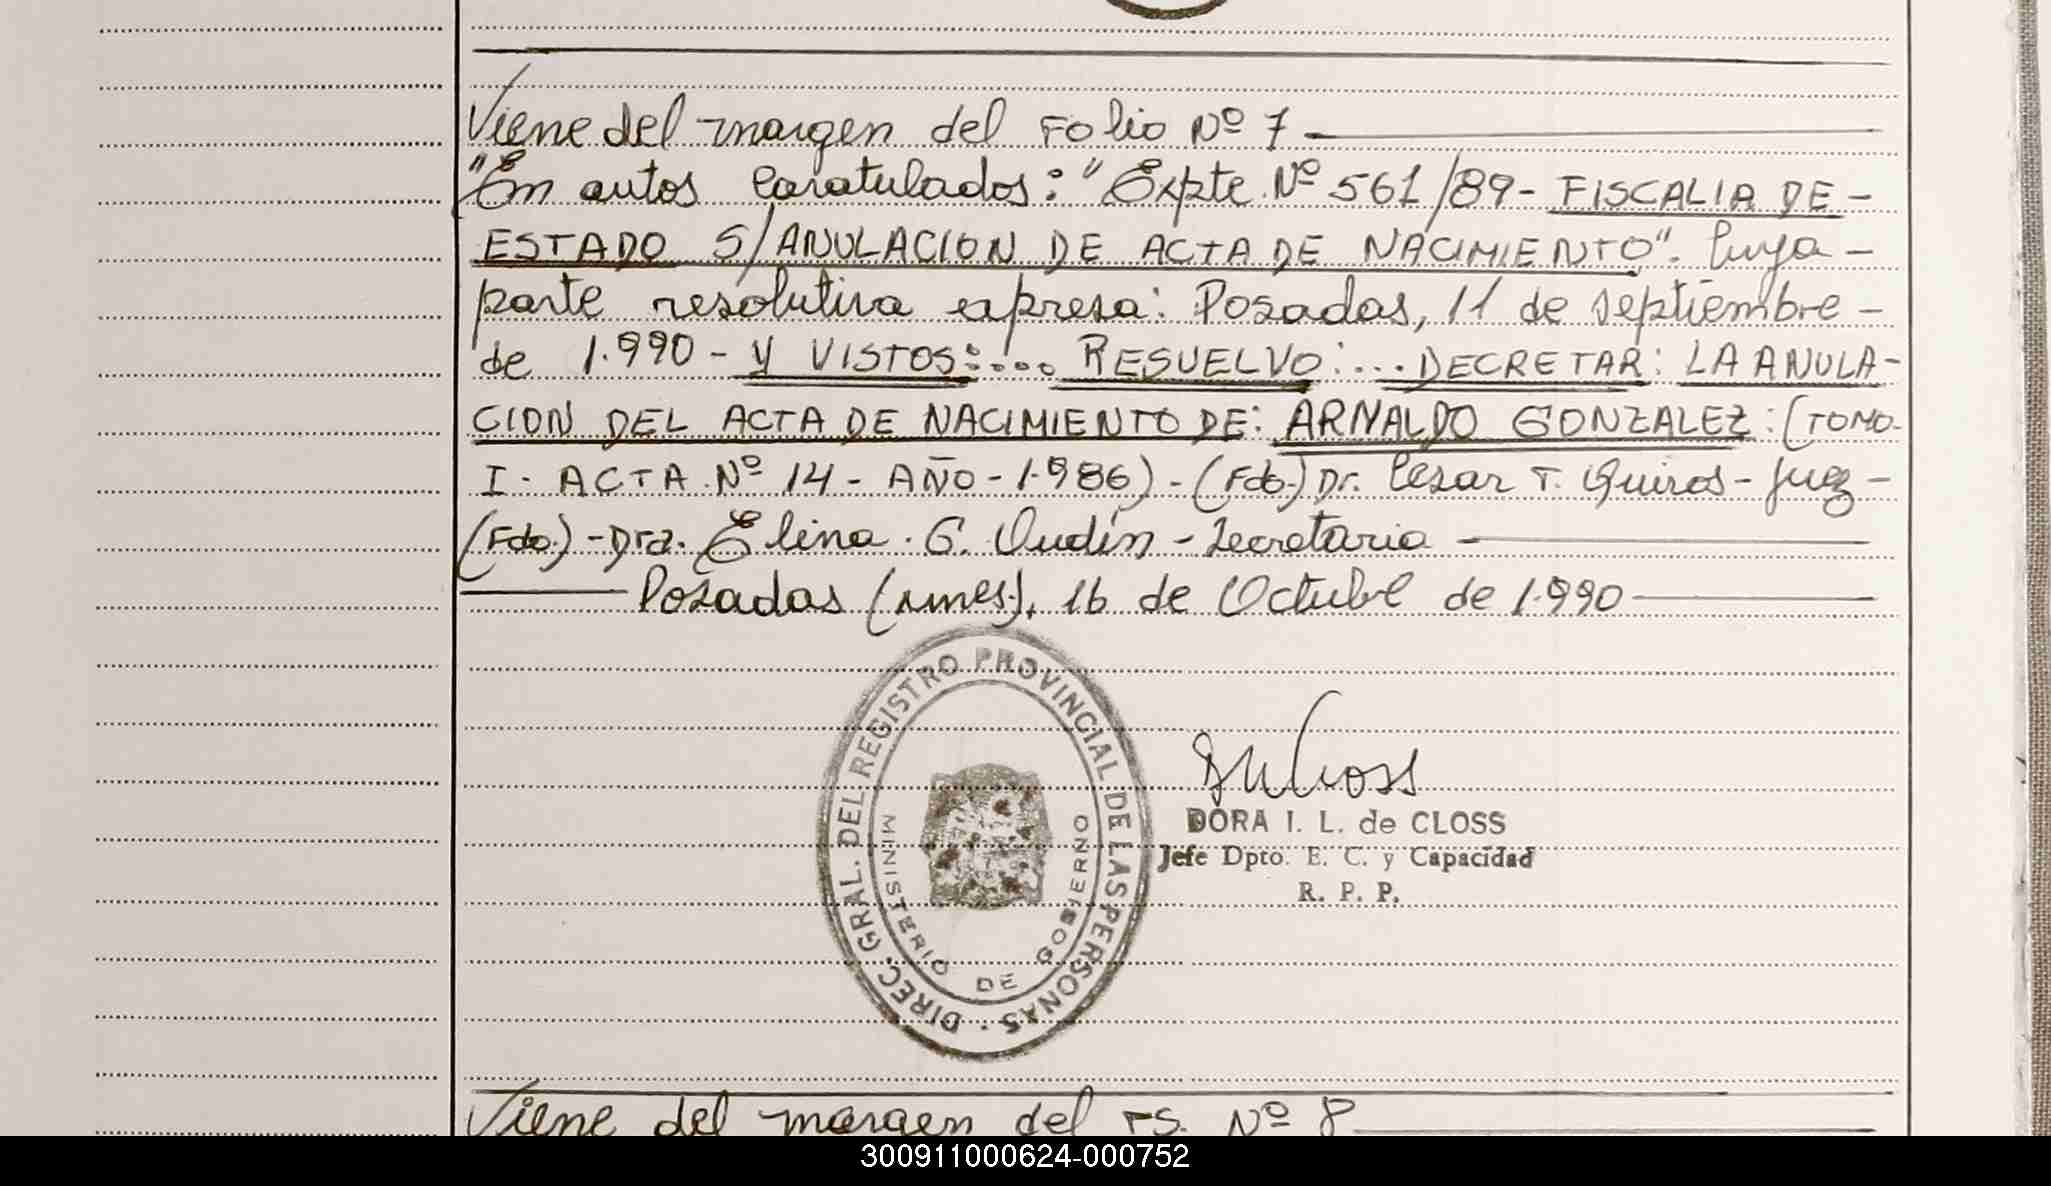 Viene del margen del Folio Nº 7
"En autos Caratulados: "Expte. Nº 561/89- FISCALIA DE-
ESTADO S/ANULACION DE ACTA DE NACIMIENTO". Cuya-
parte resolutiva expresa: Posadas, 11 de septiembre-
de 1.990- Y VISTOS:.... RESUELVO:... DECRETAR: LA ANULA-
CION DEL ACTA DE NACIMIENTO DE: ARNALDO GONZALEZ: (TOMO-
I. ACTA Nº 14- AÑO-1.986)-(Fdo.) Dr. Cesar T. Quiros-Juez-
(Fdo.)-Dra. Elina. G. Oudin-Secretaria
Posadas (Mnes.), 16 de Octubre de 1.990
DIREC. GRAL. DEL REGISTRO PROVINCIAL DE LAS PERSONAS.
MINISTERIO DE GOBIERNO
DORA I. L. de CLOSS
Jefe Dpto. E. C. y Capacidad
R. P. P.
Viene del margen del FS. Nº 8
300911000624-000752